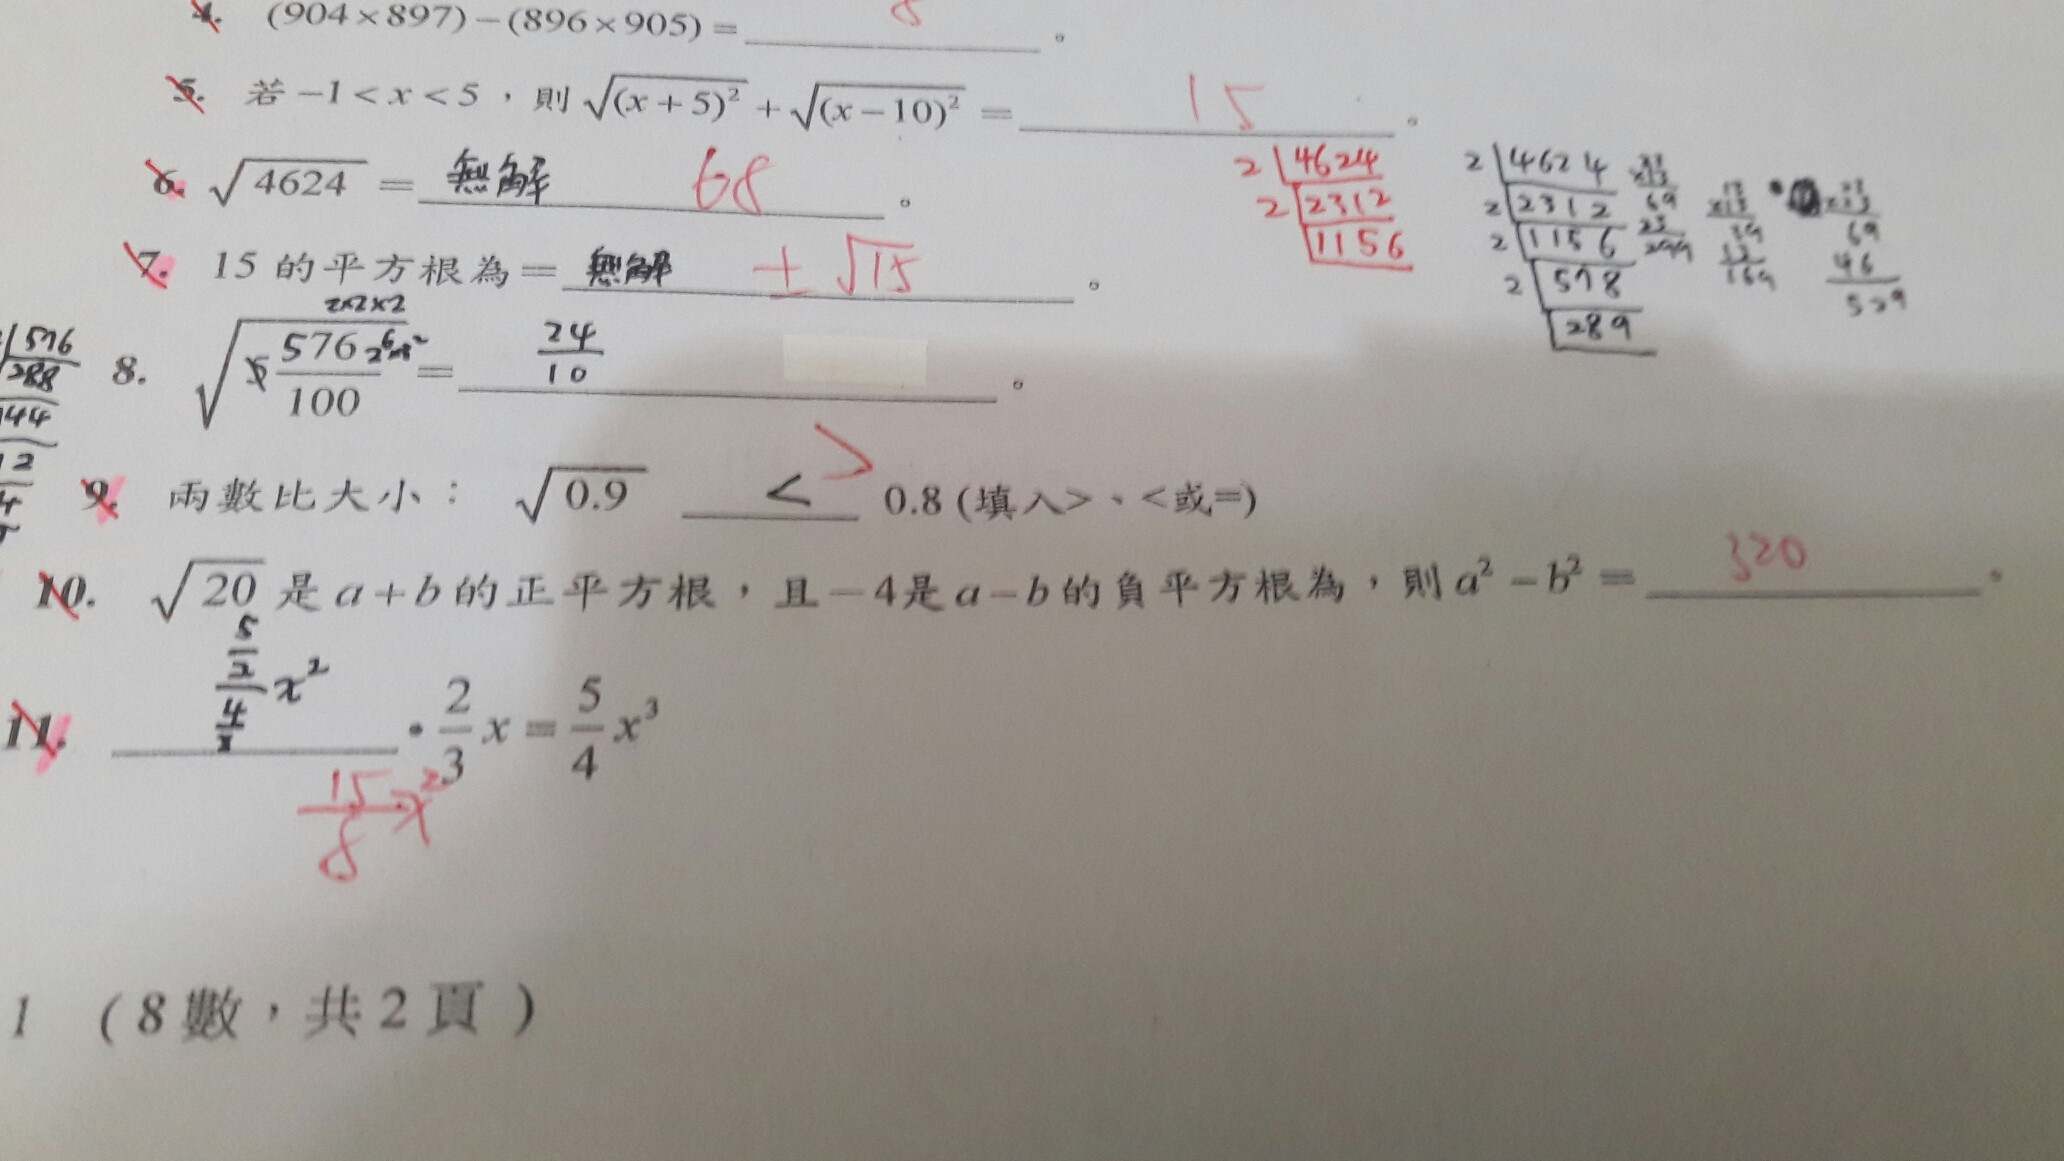 4. (904×897)−(896×905)= 8 。
5. 若 −1<x<5，則 √(x+5)² + √(x−10)² = 15 。
6. √4624 = 無解 68 。
2 4624
2 2312
1156
2 4624
2 2312
2 1156
2 578
289
69
23
299
39
13
169
69
46
529
7. 15 的平方根為= 無解 ±√15 。
2×2×2
8. √576/100 = 24/10 。
576
288
44
12
4
9. 兩數比大小： √0.9 < > 0.8 (填入>、<或=)
10. √20 是 a+b 的正平方根，且 −4是 a−b 的負平方根為，則 a²−b² = 320 。
11. x² · 2/3 x = 5/4 x³
15/8 x²
1 (8 數，共 2 頁)